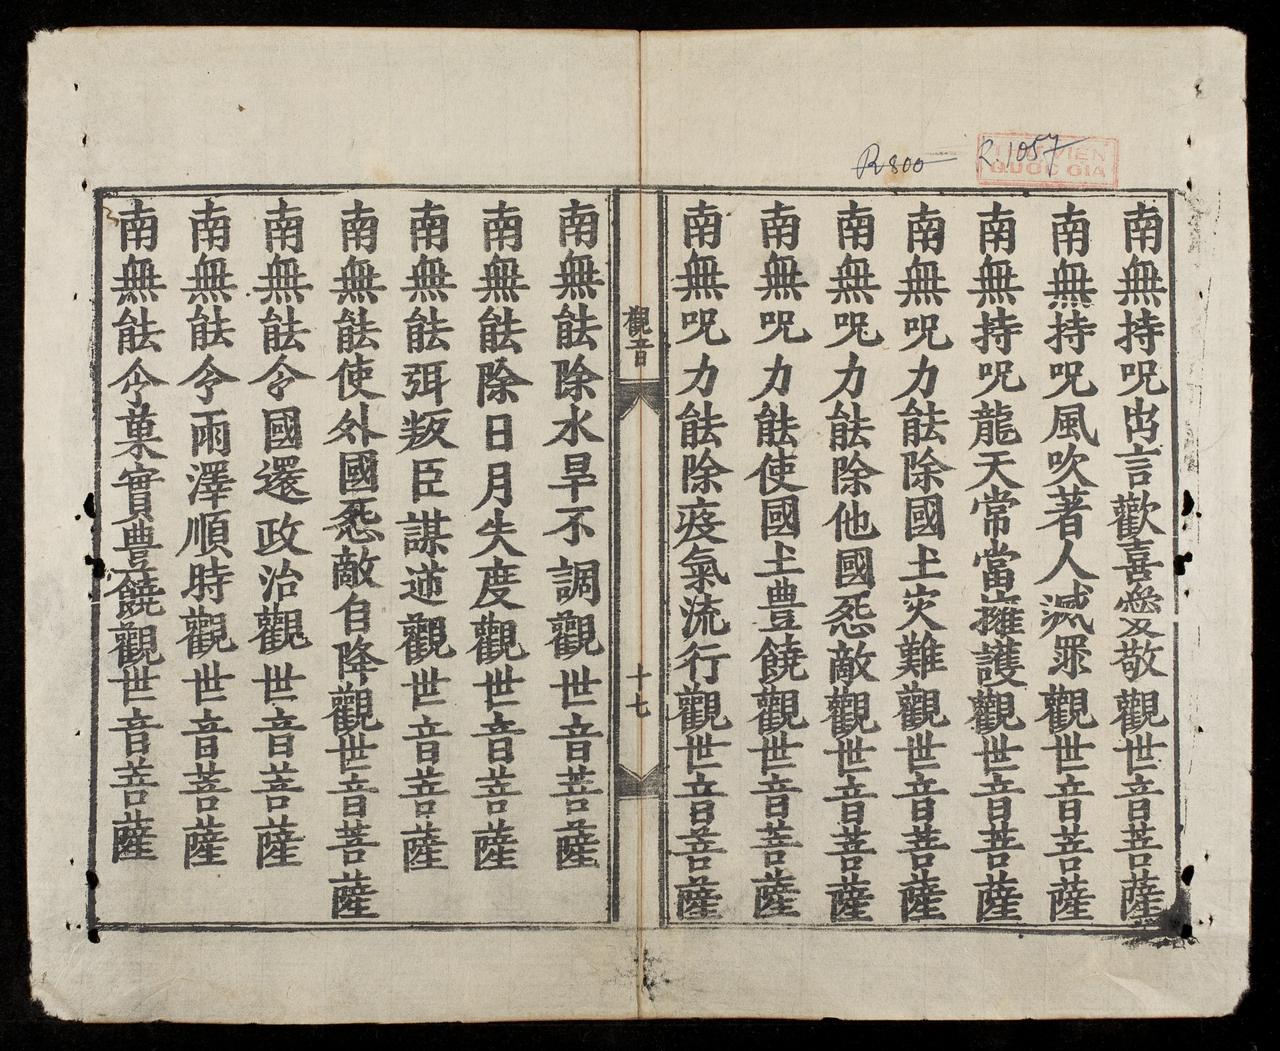 R800 R.1057
THƯ VIỆN
QUỐC GIA
南無持呪出言歡喜愛敬觀世音菩薩
南無持呪風吹著人滅罪觀世音菩薩
南無持呪龍天常當擁護觀世音菩薩
南無呪力能除國土灾難觀世音菩薩
南無呪力能除他國惌敵觀世音菩薩
南無呪力能使國土豊饒觀世音菩薩
南無呪力能除疫氣流行觀世音菩薩
觀音
十七
南無能除水旱不調觀世音菩薩
南無能除日月失度觀世音菩薩
南無能弭叛臣謀逆觀世音菩薩
南無能使外國惌敵自降觀世音菩薩
南無能令國還政治觀世音菩薩
南無能令雨澤順時觀世音菩薩
南無能令菓實豊饒觀世音菩薩